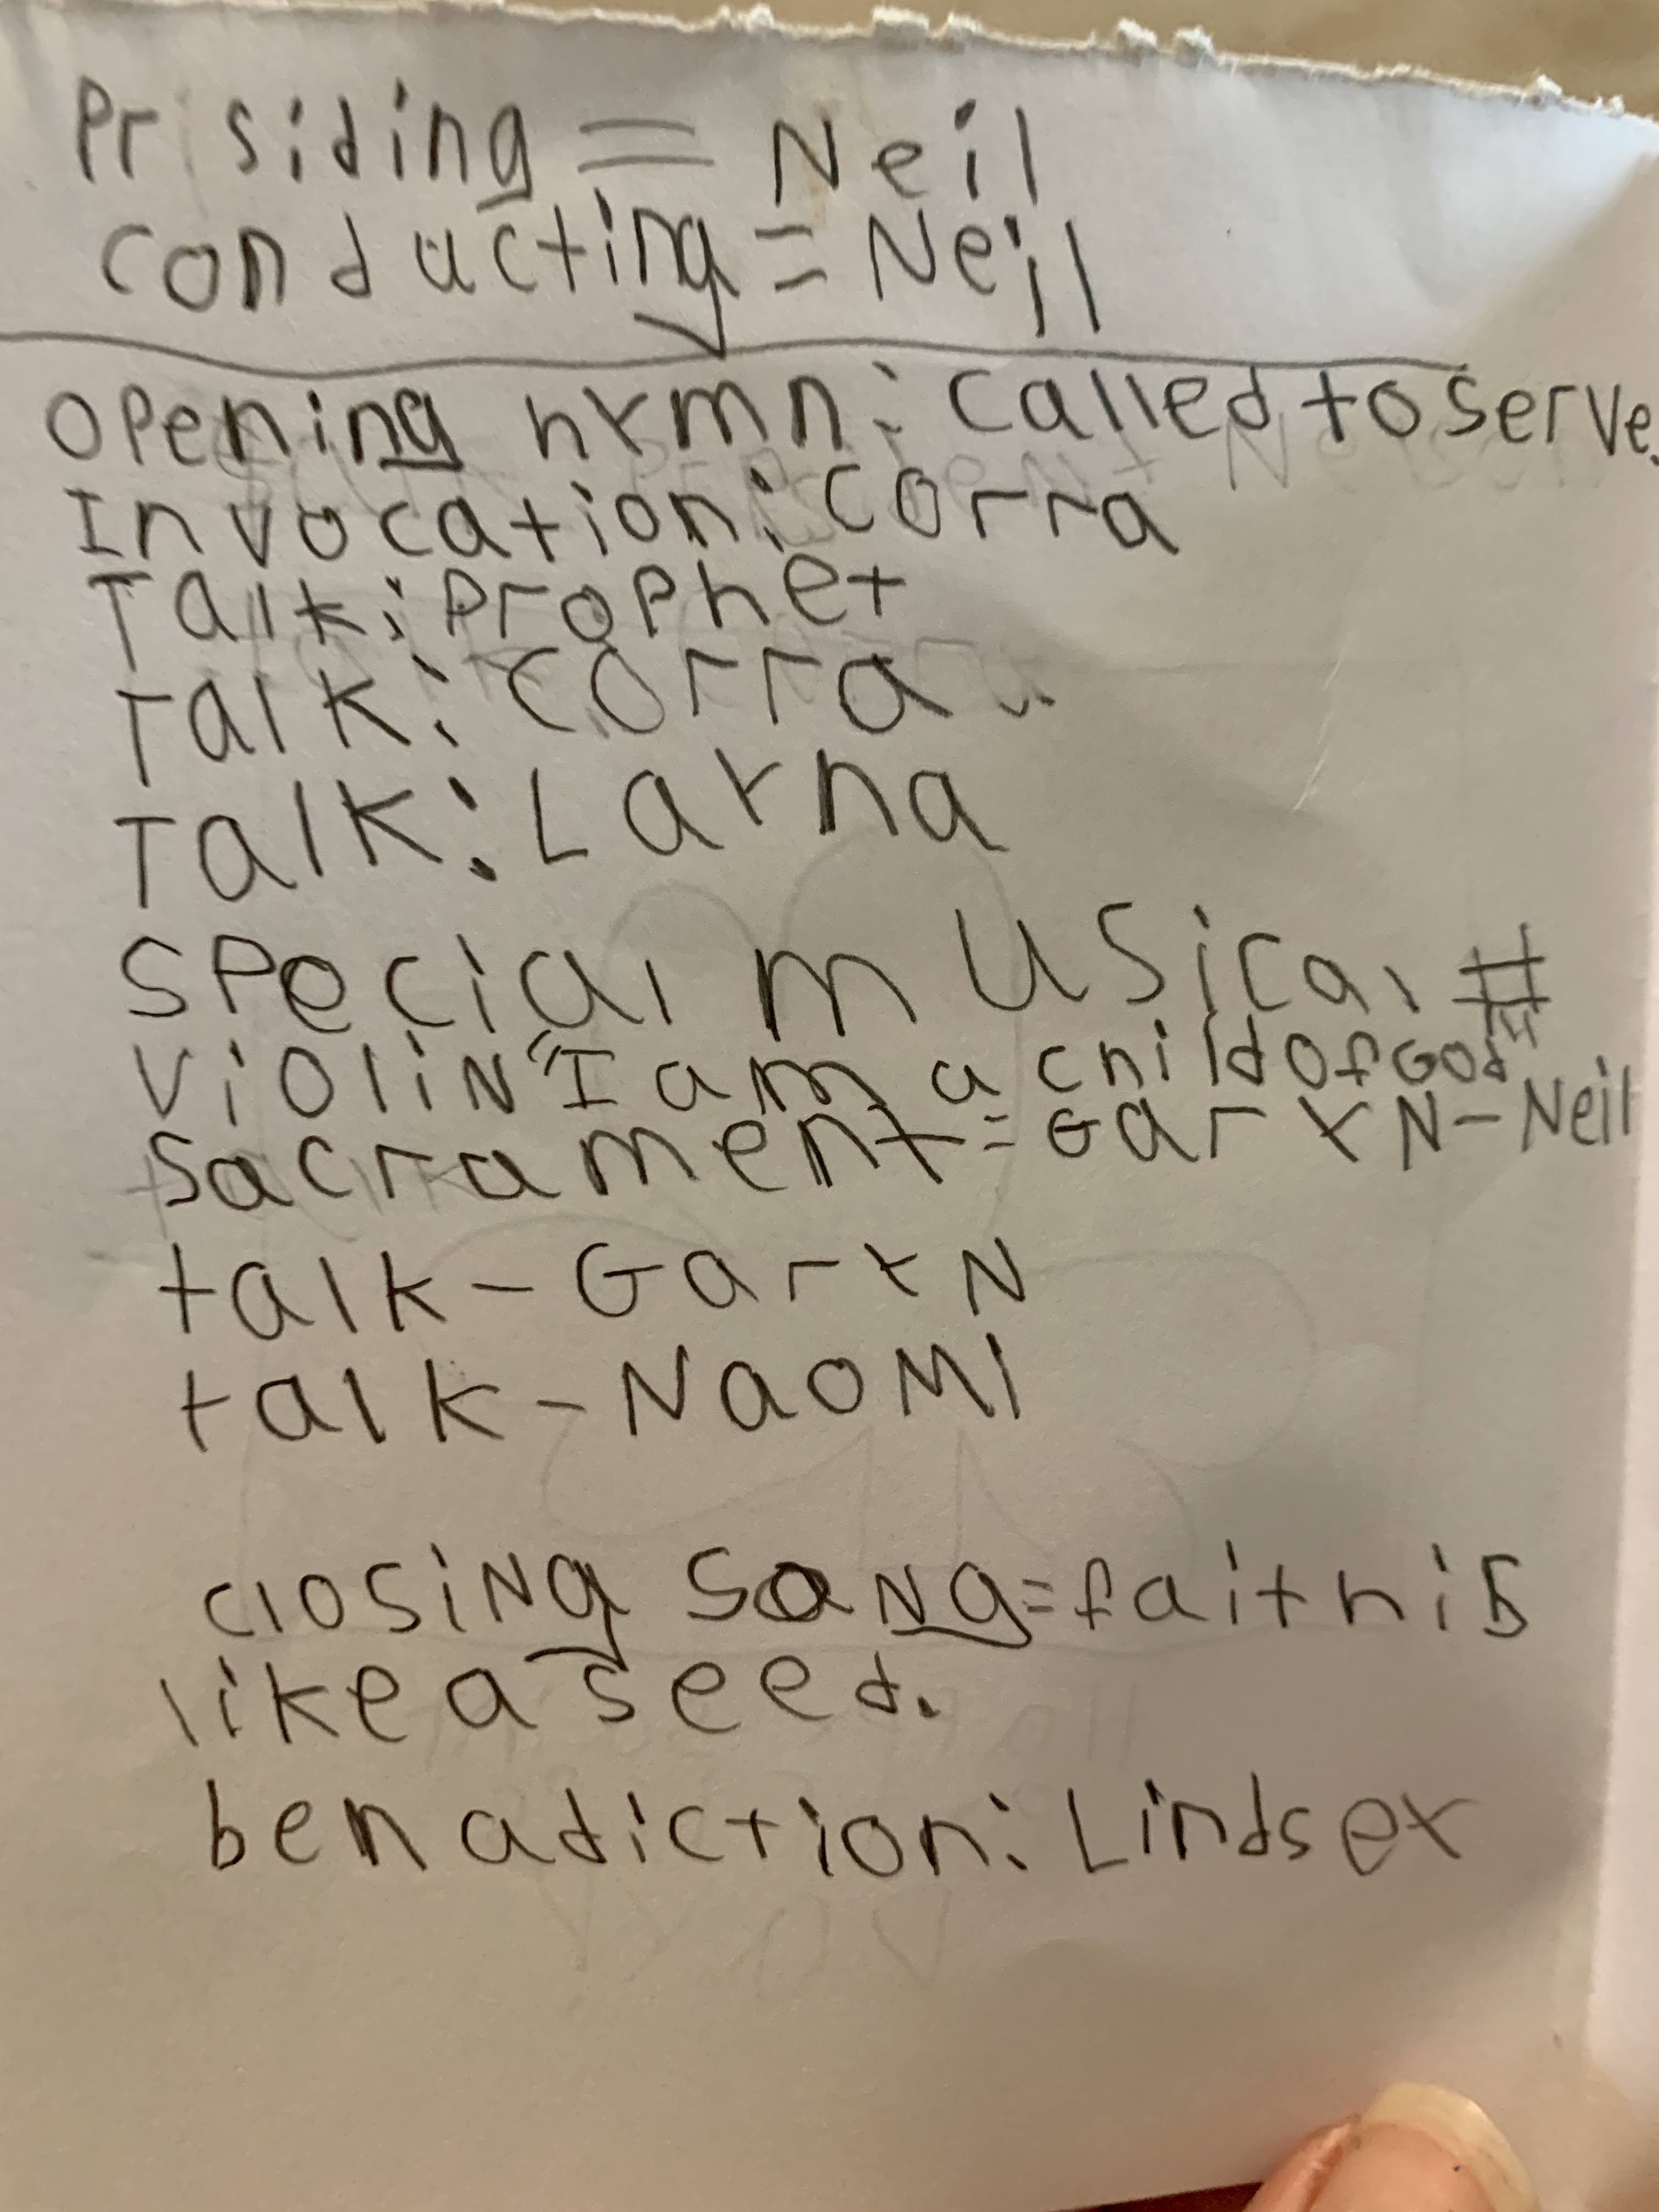 Prisiding = Neil
conducting = Neil
opening hymn: called to serve.
Invocation: corra
Talk: Prophet
Talk: corra
Talk: Layna
special musical #
violin "I am a child of God"
Sacrament = Garyn - Neil
talk - Garyn
talk - Naomi
closing song = faith is
like a seed.
benadiction: Lindsey